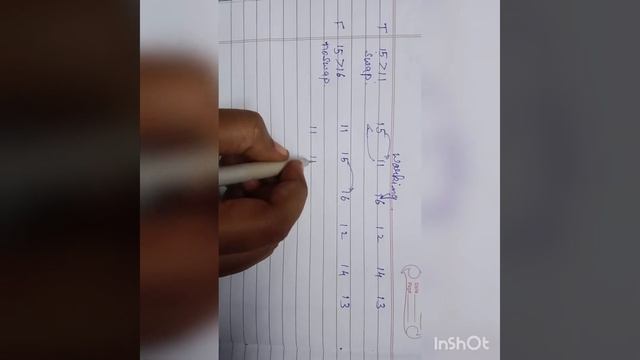 Date
Page
Working.
T 15 > 11 15 11 16 12 14 13
swap.
F 15 > 16 11 15 16 12 14 13
noswap.
11 11
InShOt